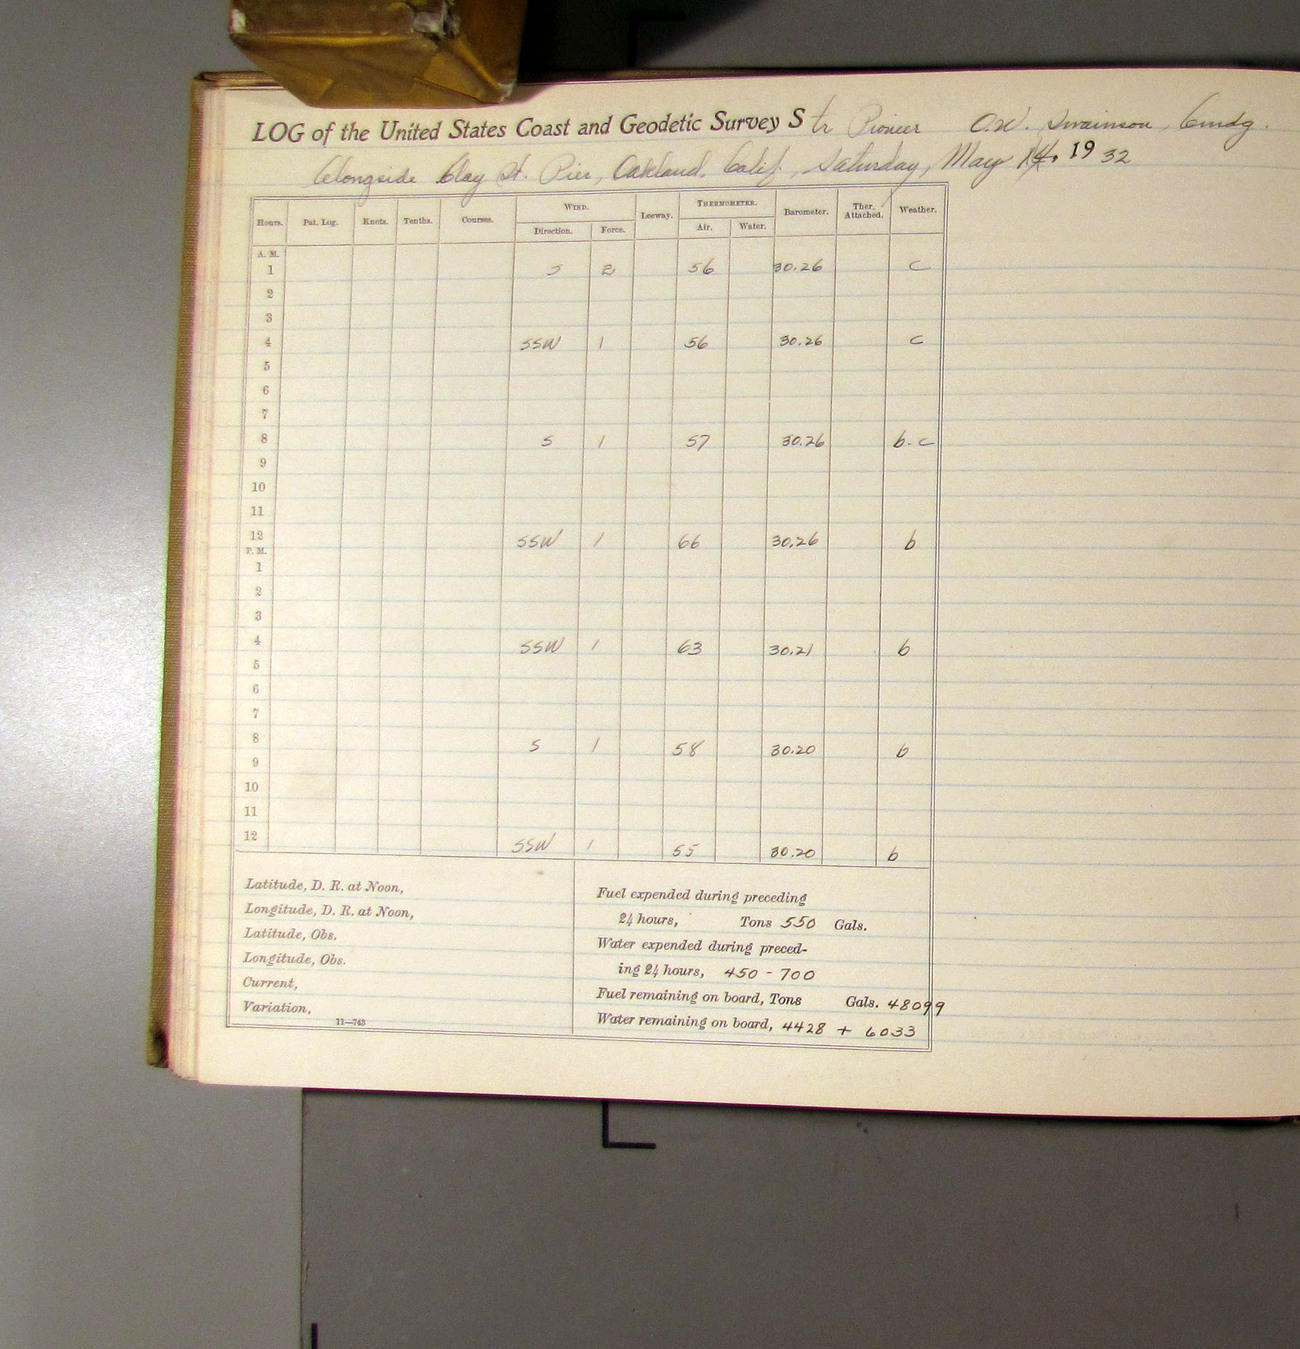 LOG of the United States Coast and Geodetic Survey Str Pioneer O.W. Swainson, Cmdg.
Alongside Clay St. Pier, Oakland, Calif., Saturday, May 14, 1932
Hours. Pat. Log. Knots. Tenths. Courses. WIND. Leeway. THERMOMETER. Barometer. Ther. Attached. Weather.
Direction. Force. Air. Water.
A. M.
1 S 2 56 30.26 c
2
3
4 SSW 1 56 30.26 c
5
6
7
8 S 1 57 30.26 b-c
9
10
11
12 SSW 1 66 30.26 b
P. M.
1
2
3
4 SSW 1 63 30.21 b
5
6
7
8 S 1 58 30.20 b
9
10
11
12 SSW 1 55 30.20 b
Latitude, D. R. at Noon,
Longitude, D. R. at Noon,
Latitude, Obs.
Longitude, Obs.
Current,
Variation,
11—743
Fuel expended during preceding
24 hours, Tons 550 Gals.
Water expended during preced-
ing 24 hours, 450 - 700
Fuel remaining on board, Tons Gals. 48099
Water remaining on board, 4428 + 6033